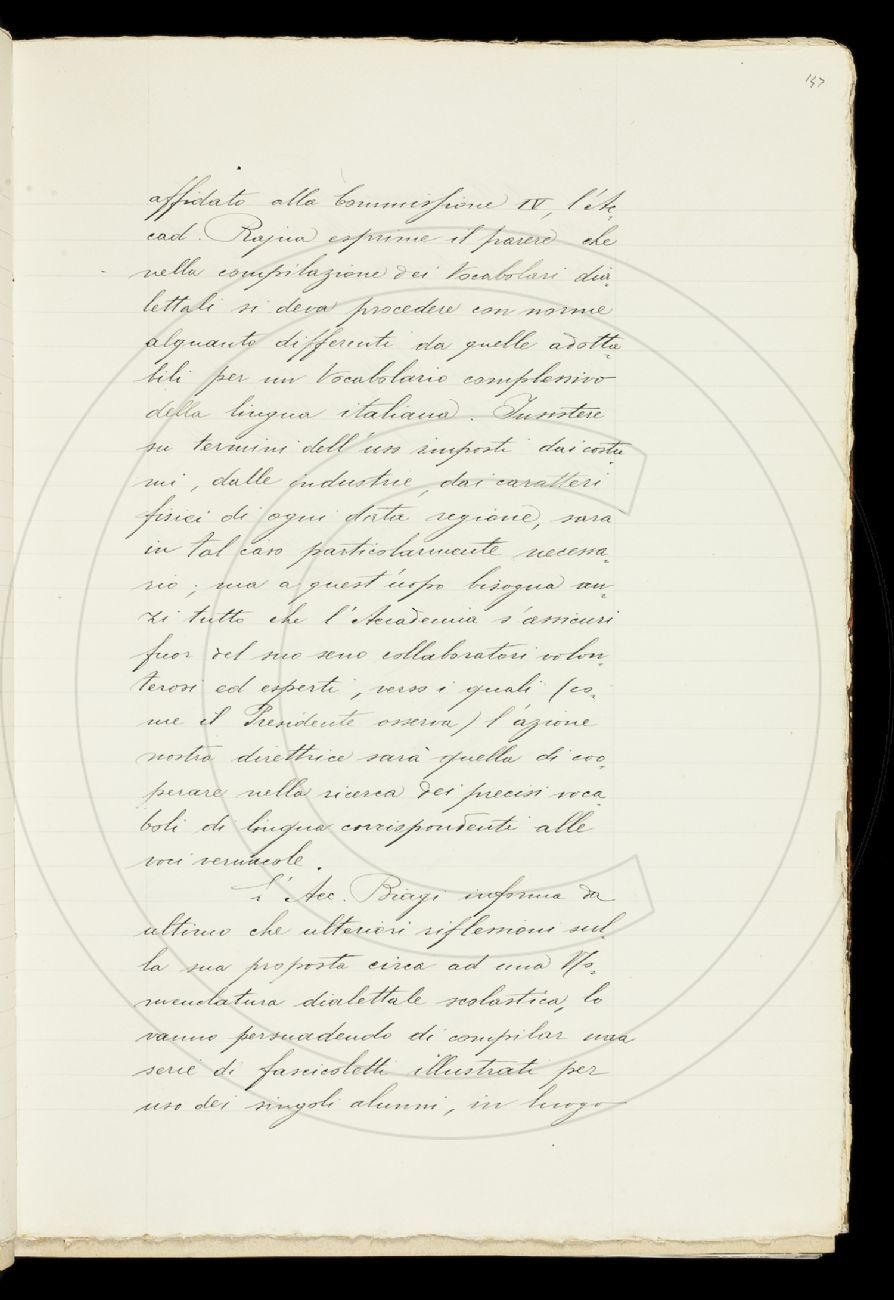 157
affidato alla Commissione IV, l'Ac„
cad. Rajna esprime il parere che
nella compilazione dei Vocabolari dia„
lettali si deva procedere con norme
alquanto differenti da quelle adotta„
bili per un Vocabolario complessivo
della lingua italiana. Insistere
su termini dell'uso imposti dai costu„
mi, dalle industrie, dai caratteri
fisici di ogni data regione, sara
in tal caso particolarmente necessa„
rio; ma a quest'uopo bisogna an„
zi tutto che l'Accademia s'assicuri
fuor del suo seno collaboratori volon„
terosi ed esperti, verso i quali (co„
me il Presidente osserva) l'azione
nostra direttrice sarà quella di coo„
perare nella ricerca dei precisi voca„
boli di lingua corrispondenti alle
voci vernacole.
L'Acc. Biagi informa da
ultimo che ulteriori riflessioni sul„
la sua proposta circa ad una No„
menclatura dialettale scolastica, lo
vanno persuadendo di compilar una
serie di fascicoletti illustrati per
uso dei singoli alunni, in luogo